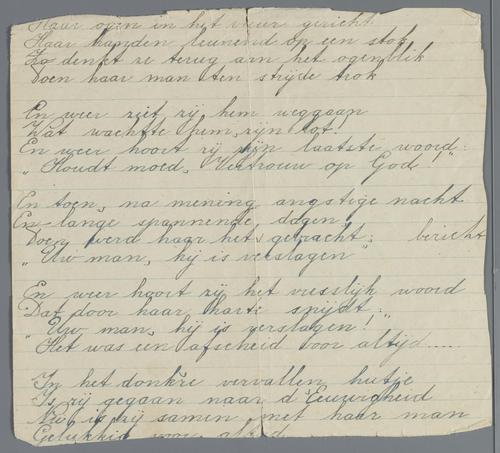 Haar ogen in het vuur gericht
Haar handen leunend op een stok
Zo denkt ze terug aan het ogenblik
Doen haar man ten strijde trok

En weer ziet zij hem weggaan
Wat wachtte hem, zijn lot!
En weer hoort zij zijn laatste woord:
"Houdt moed, Vertrouw op God!"

En toen, na mening angstige nacht
En lange spannende dagen,
Doen werd haar het gebracht: bericht
"Uw man, hij is verslagen"

En weer hoort zij het vreeslijk woord
Dat door haar harte snijdt:
"Uw man, hij is verslagen!"
"Het was een afscheid voor altijd.....

In het donk're vervallen hutje
Is zij gegaan naar d'Eeuwigheid
Nu is zij samen met haar man
Gelukkig voor altijd